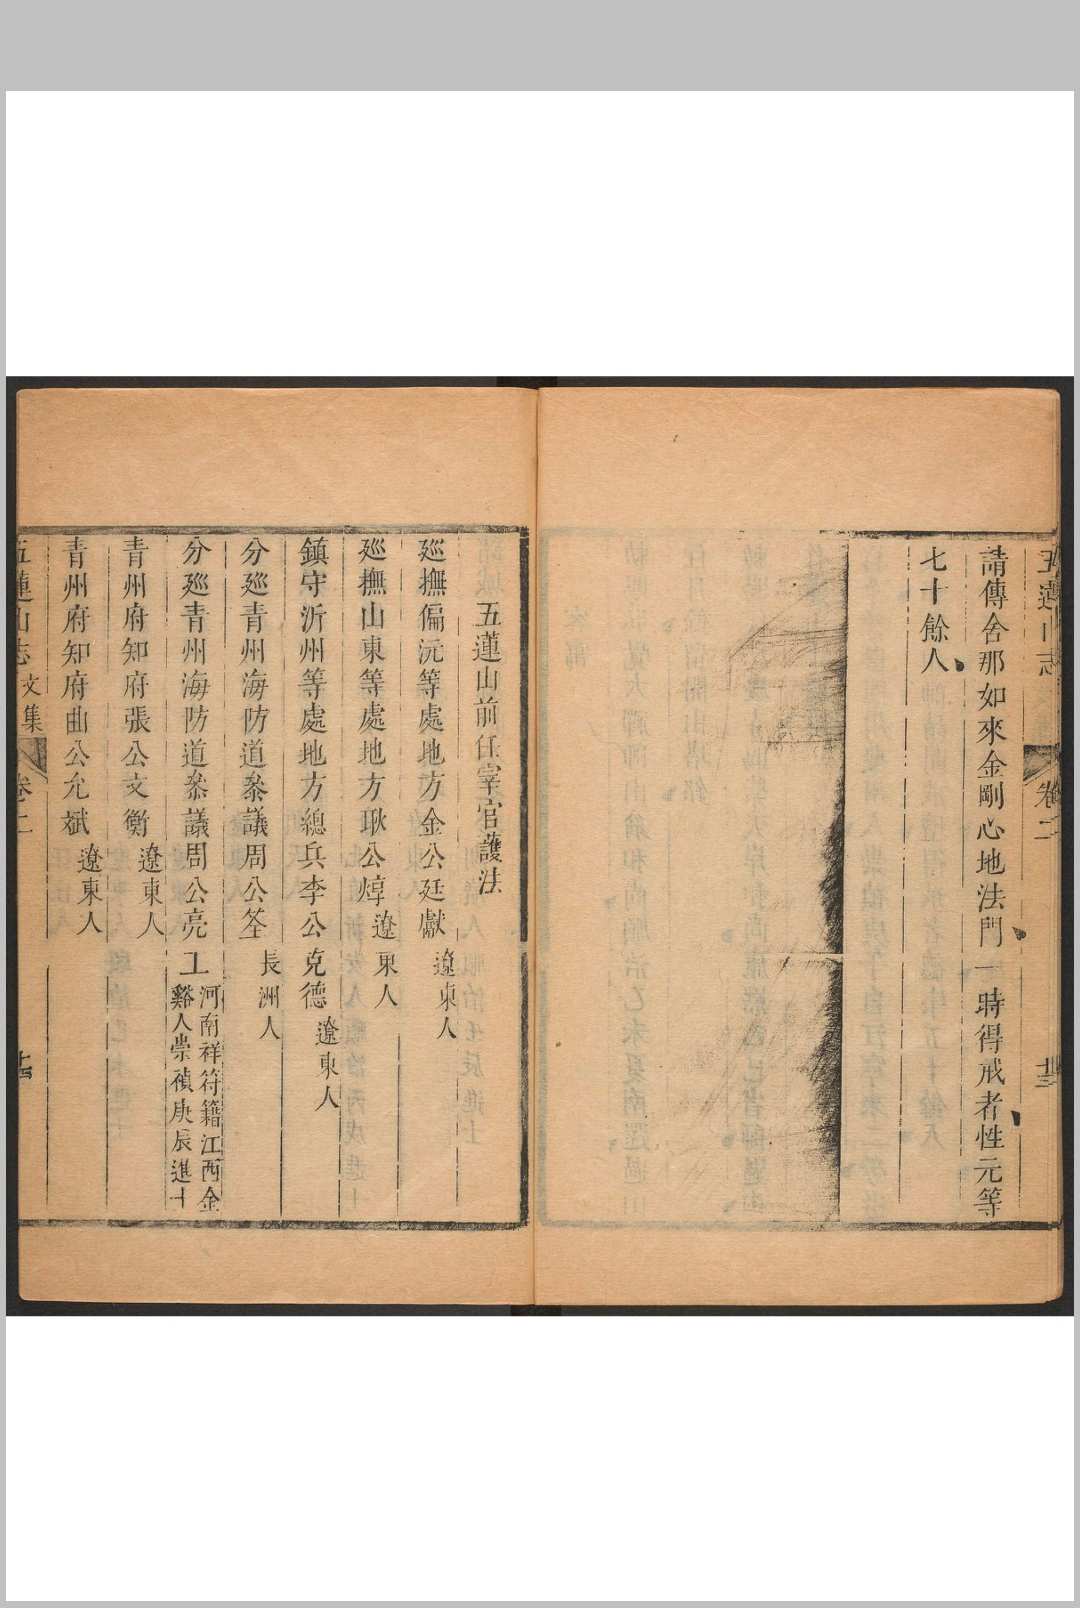 五蓮山志
卷二
十三
請傳舍那如來金剛心地法門一時得戒者性元等
七十餘人
五蓮山前任宰官護法
廵撫偏沅等處地方金公廷獻遼東人
廵撫山東等處地方耿公焞遼東人
鎮守沂州等處地方總兵李公克德遼東人
分廵青州海防道叅議周公荃長洲人
分廵青州海防道叅議周公亮工河南祥符籍江西金
谿人崇禎庚辰進士
青州府知府張公文衡遼東人
青州府知府曲公允斌遼東人
五蓮山志
文集
卷二
十四